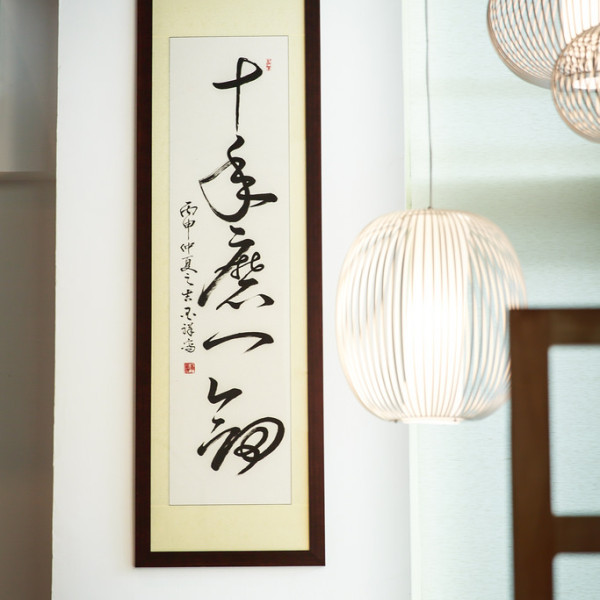 十年磨一劍
丙申仲夏之吉